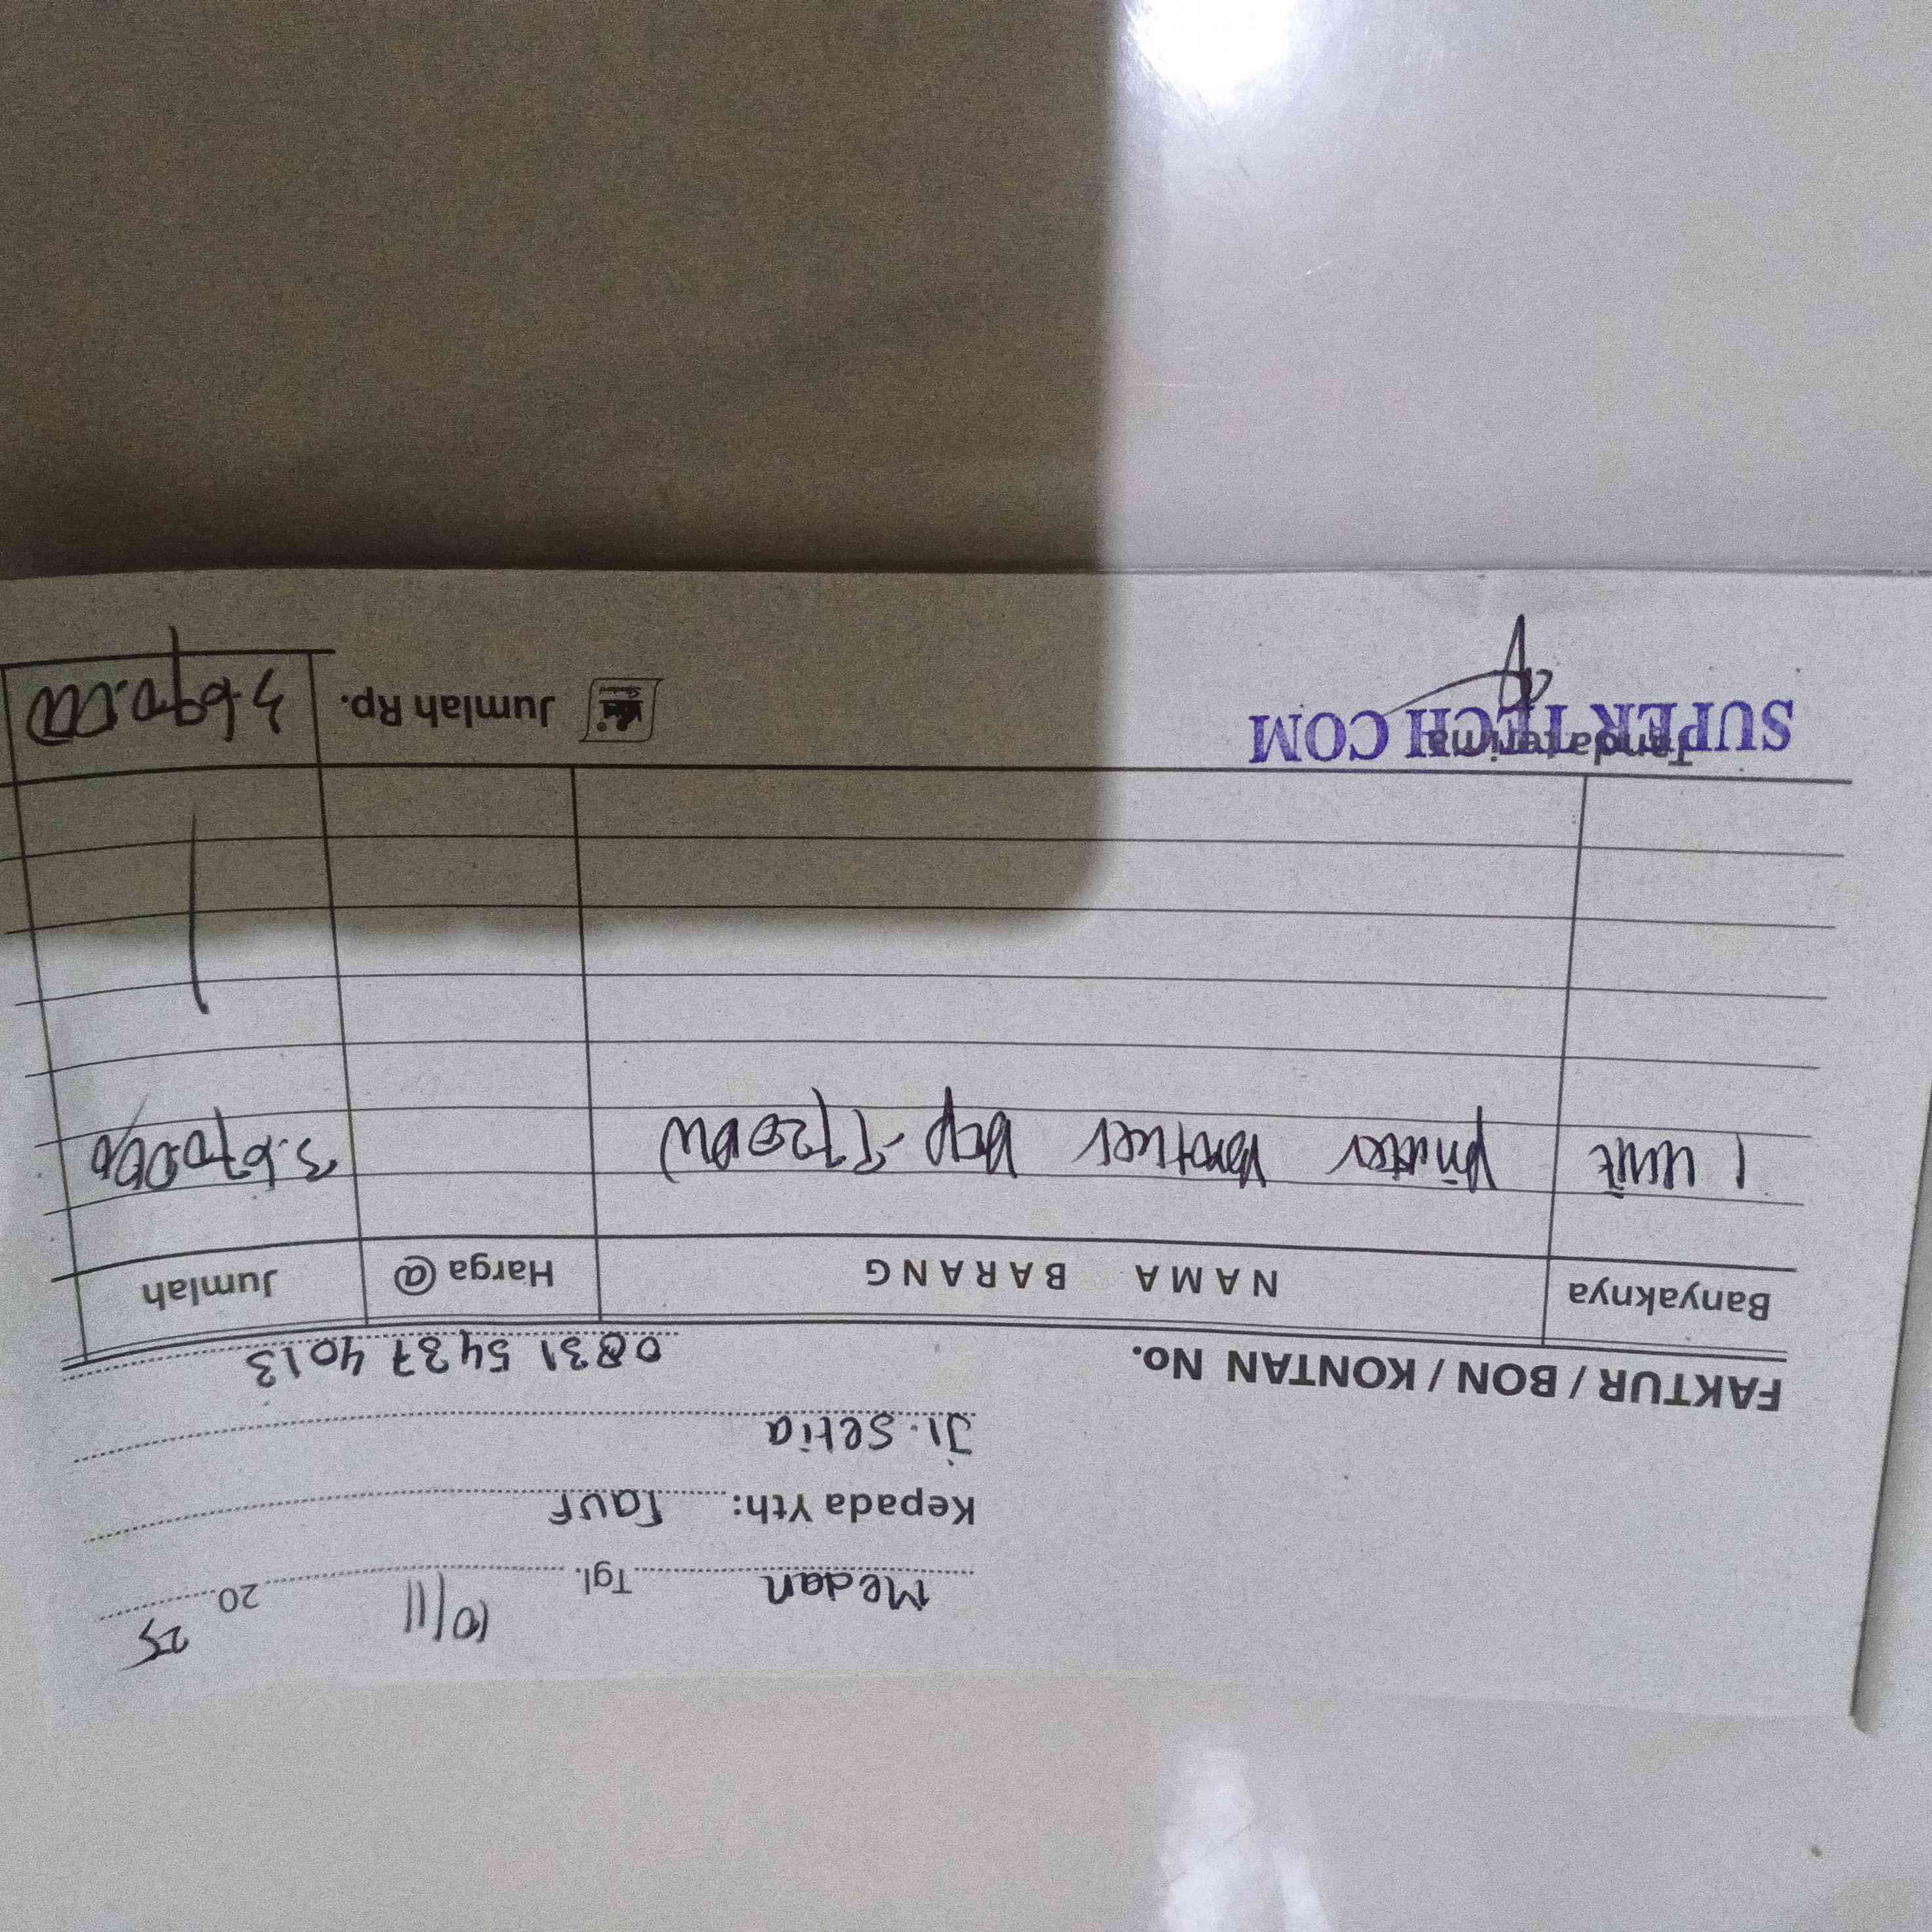 Medan Tgl. 10/11 20 25
Kepada Yth: Tauf
Jl. Setia
FAKTUR / BON / KONTAN No. 0831 5437 4013
Banyaknya NAMA BARANG Harga @ Jumlah
1 unit printer brother Dcp-T720DW 3.670.000
Tanda terima Jumlah Rp. 3.670.000
SUPERTECH COM